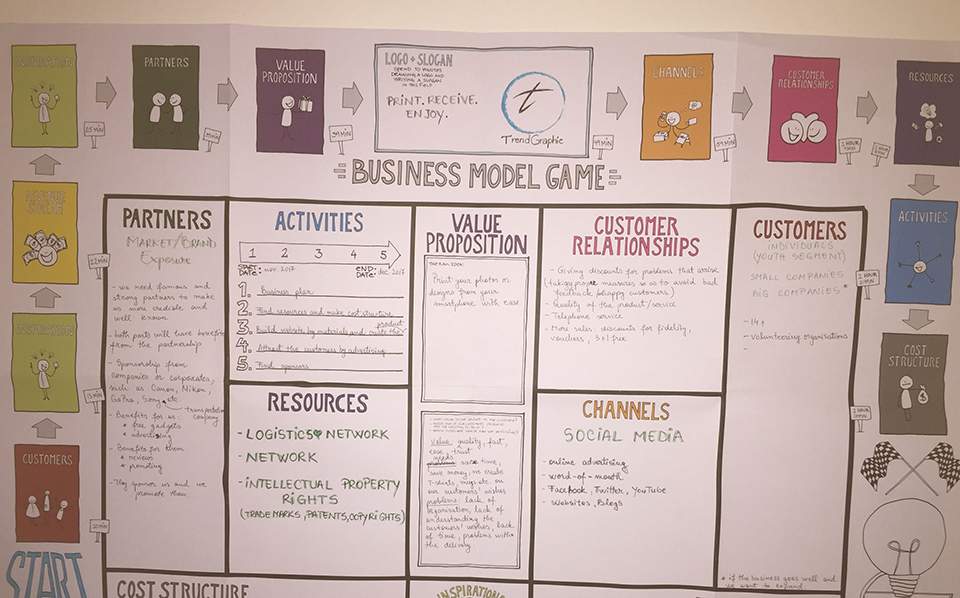 INSPIRATION
PARTNERS
VALUE
PROPOSITION
LOGO + SLOGAN
SPEND 10 MINUTES
DRAWING A LOGO AND
WRITING A SLOGAN
IN THIS FIELD
PRINT. RECEIVE.
ENJOY.
t
TrendGraphic
CHANNELS
CUSTOMER
RELATIONSHIPS
RESOURCES
25 MIN
39 MIN
49 MIN
1 HOUR
BUSINESS MODEL GAME
REVENUE
STREAM
INSPIRATION
CUSTOMERS
START
22 MIN
13 MIN
10 MIN
ACTIVITIES
COST
STRUCTURE
1 HOUR
PARTNERS
MARKET/BRAND
Exposure
- we need famous and
strong partners to make
us more credible and
well known
- both parts will have benefits
from the partnership
- Sponsorship from
companies or corporates,
such as Canon, Nikon,
GoPro, Sony, etc
transportation
company
- Benefits for us:
* free gadgets
* advertising
- Benefits for them
* reviews
* promoting
- They sponsor us and we
promote them
ACTIVITIES
1 2 3 4 5
START
DATE: nov. 2017
END
DATE: dec 2017
1. Business plan
2. Find resources and make cost structure
product
3. Build website by materials and
4. Attract the customers by advertising
5. Find sponsors
RESOURCES
- LOGISTICS NETWORK
- NETWORK
- INTELLECTUAL PROPERTY
RIGHTS
(TRADEMARKS, PATENTS, COPYRIGHTS)
VALUE
PROPOSITION
Print your photos or
designs from your
smartphone with ease
Value: quality, fast,
ease, trust
needs
problems: save time,
save money, we create
T-shirts, mugs etc. on
our customers' wishes
problems: lack of
organisation, lack of
understanding the
customers' wishes, lack
of time, problems with
the delivery
CUSTOMER
RELATIONSHIPS
- Giving discounts for problems that arise
(taking measures so as to avoid bad
feedback / unhappy customers)
- Quality of the product/service
- Telephone service
- More sales: discounts for fidelity,
vouchers, 3+1 free
CHANNELS
SOCIAL MEDIA
- online advertising
- word-of-mouth
- Facebook, Twitter, YouTube
- Websites, Blogs
CUSTOMERS
INDIVIDUALS
(YOUTH SEGMENT)
SMALL COMPANIES
BIG COMPANIES*
- 14+
- Volunteering organisations
-
* if the business goes well and
we want to expand
COST STRUCTURE
INSPIRATIONS